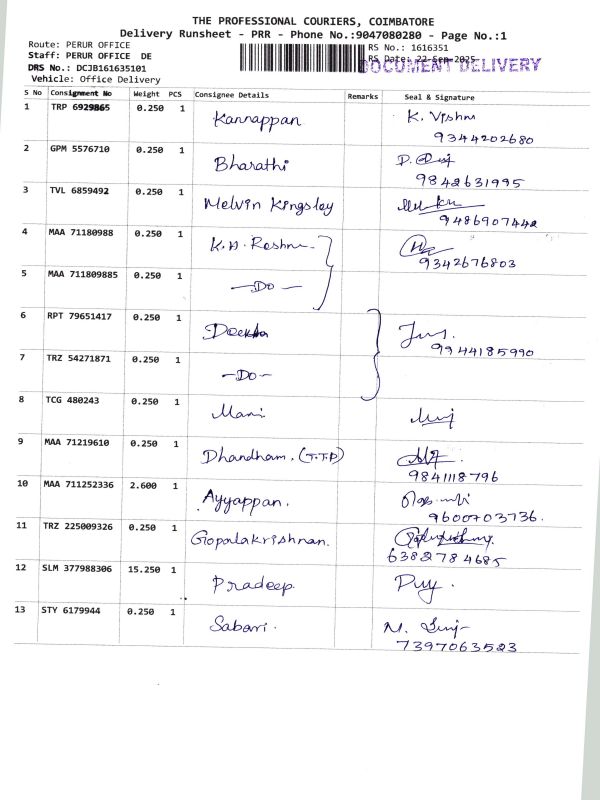 THE PROFESSIONAL COURIERS, COIMBATORE
Delivery Runsheet - PRR - Phone No.:9047080280 - Page No.:1
Route: PERUR OFFICE
RS No.: 1616351
Staff: PERUR OFFICE DE
RS Date: 22-Sep-2025
DOCUMENT DELIVERY
DRS No.: DCJB161635101
Vehicle: Office Delivery
S No Consignment No Weight PCS Consignee Details Remarks Seal & Signature
1 TRP 6929865 0.250 1 Kannappan K. Vishnu
9344202680
2 GPM 5576710 0.250 1 Bharathi
9842631995
3 TVL 6859492 0.250 1 Melvin Kingsley
9486907442
4 MAA 71180988 0.250 1 K.A. Reshma
9342676803
5 MAA 711809885 0.250 1 -Do-
6 RPT 79651417 0.250 1
9944185990
7 TRZ 54271871 0.250 1 -Do-
8 TCG 480243 0.250 1 Mani
9 MAA 71219610 0.250 1 Dhandham. (T.T.D)
9841118796
10 MAA 711252336 2.600 1 Ayyappan.
9600703736.
11 TRZ 225009326 0.250 1 Gopalakrishnan.
6382784685
12 SLM 377988306 15.250 1 Pradeep
13 STY 6179944 0.250 1 Sabari.
7397063523